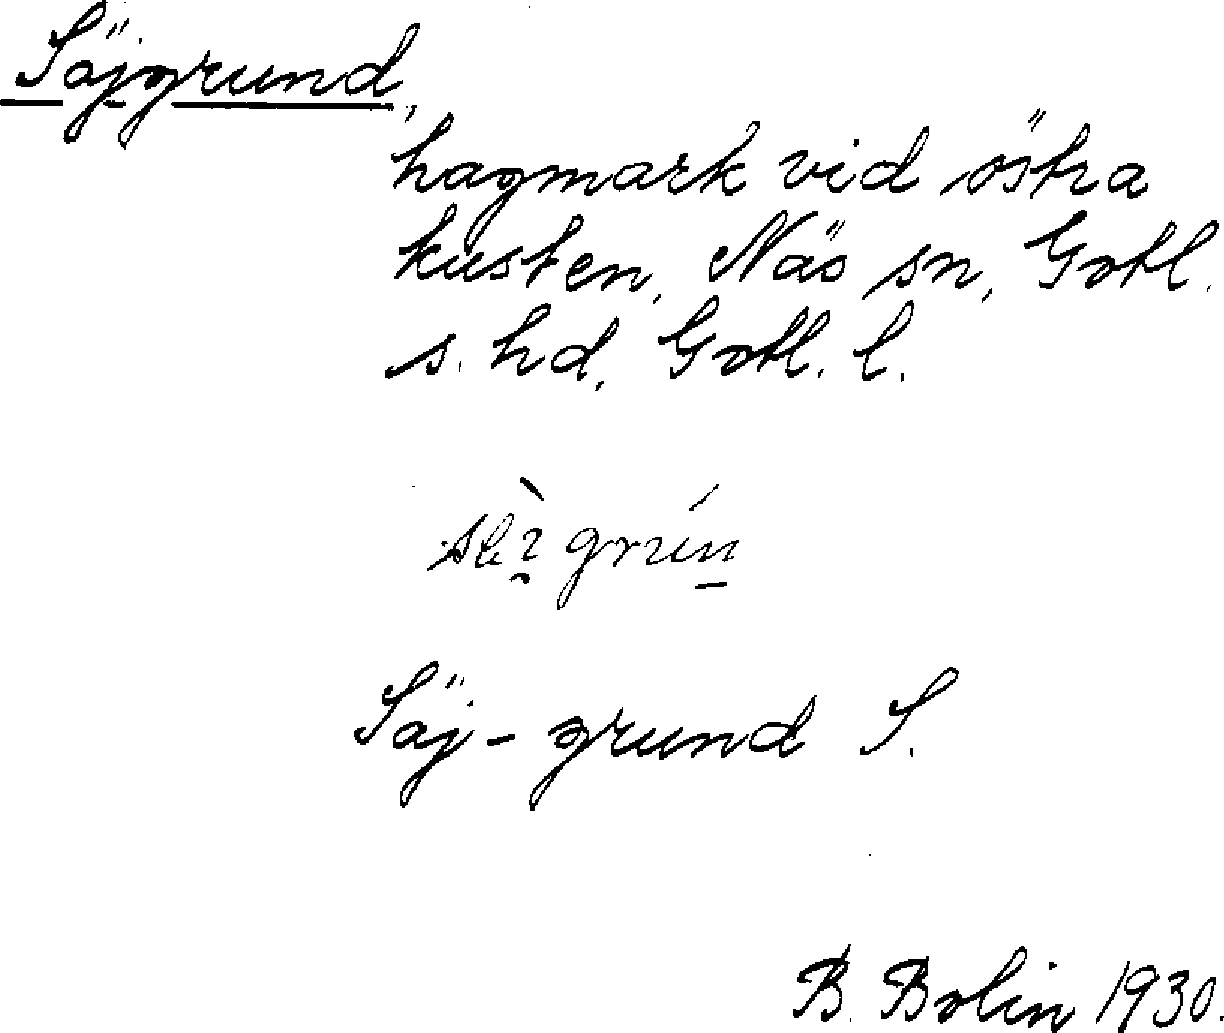 Säjgrund,
hagmark vid östra
kusten, Näs sn, Gotl.
s. hd, Gotl. l.
Säj - grund S.
B. Bolin 1930.